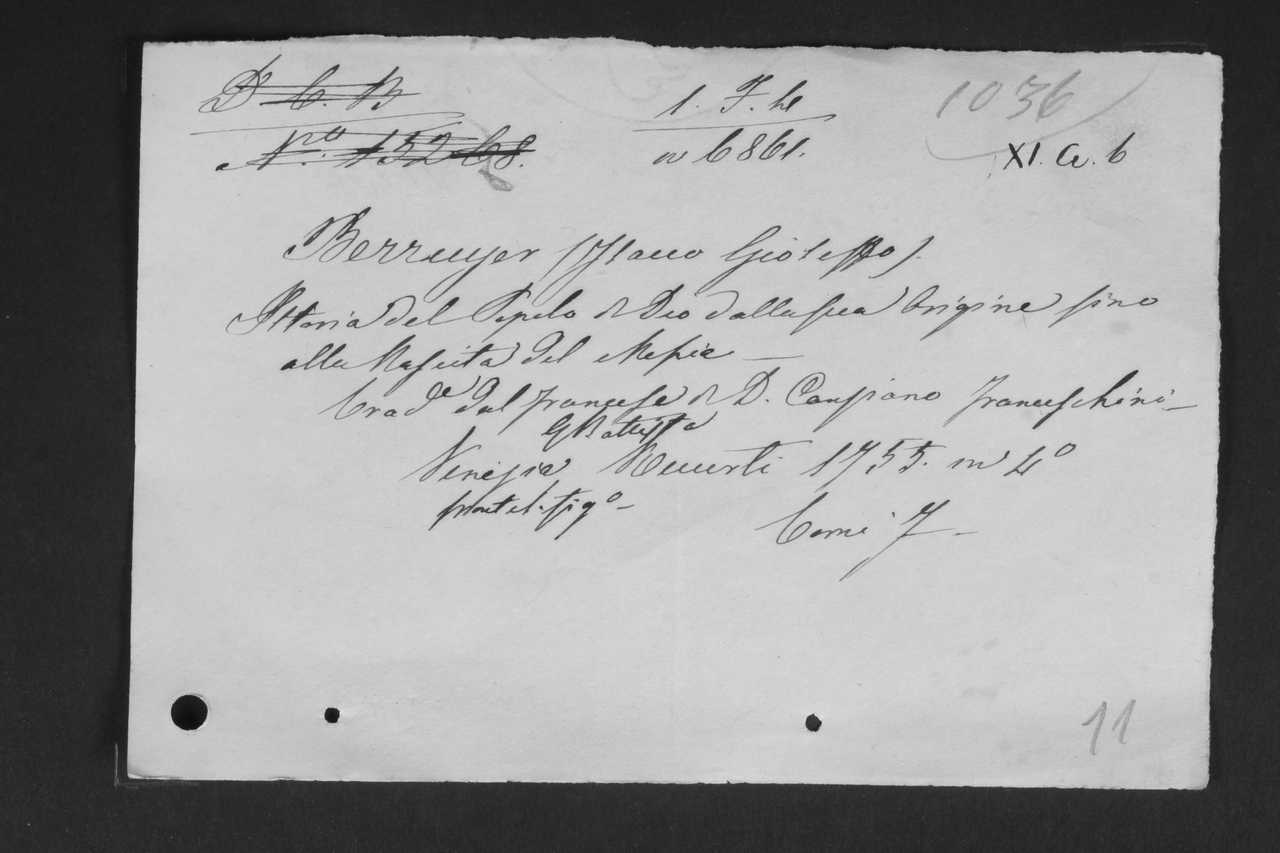 D. C. B
1. F. he
1036
No. 15268.
6861.
XI. a. 6
Berruyer (Isacco Giuseppo).
Istoria del Popolo di Dio dalla sua Origine fino
alla Nascita del Messia —
Trad.e dal Francese di D. Canziano Franceschini —
GBattista
Venezia Recurti 1755. in 4o
Tomi 7 —
11